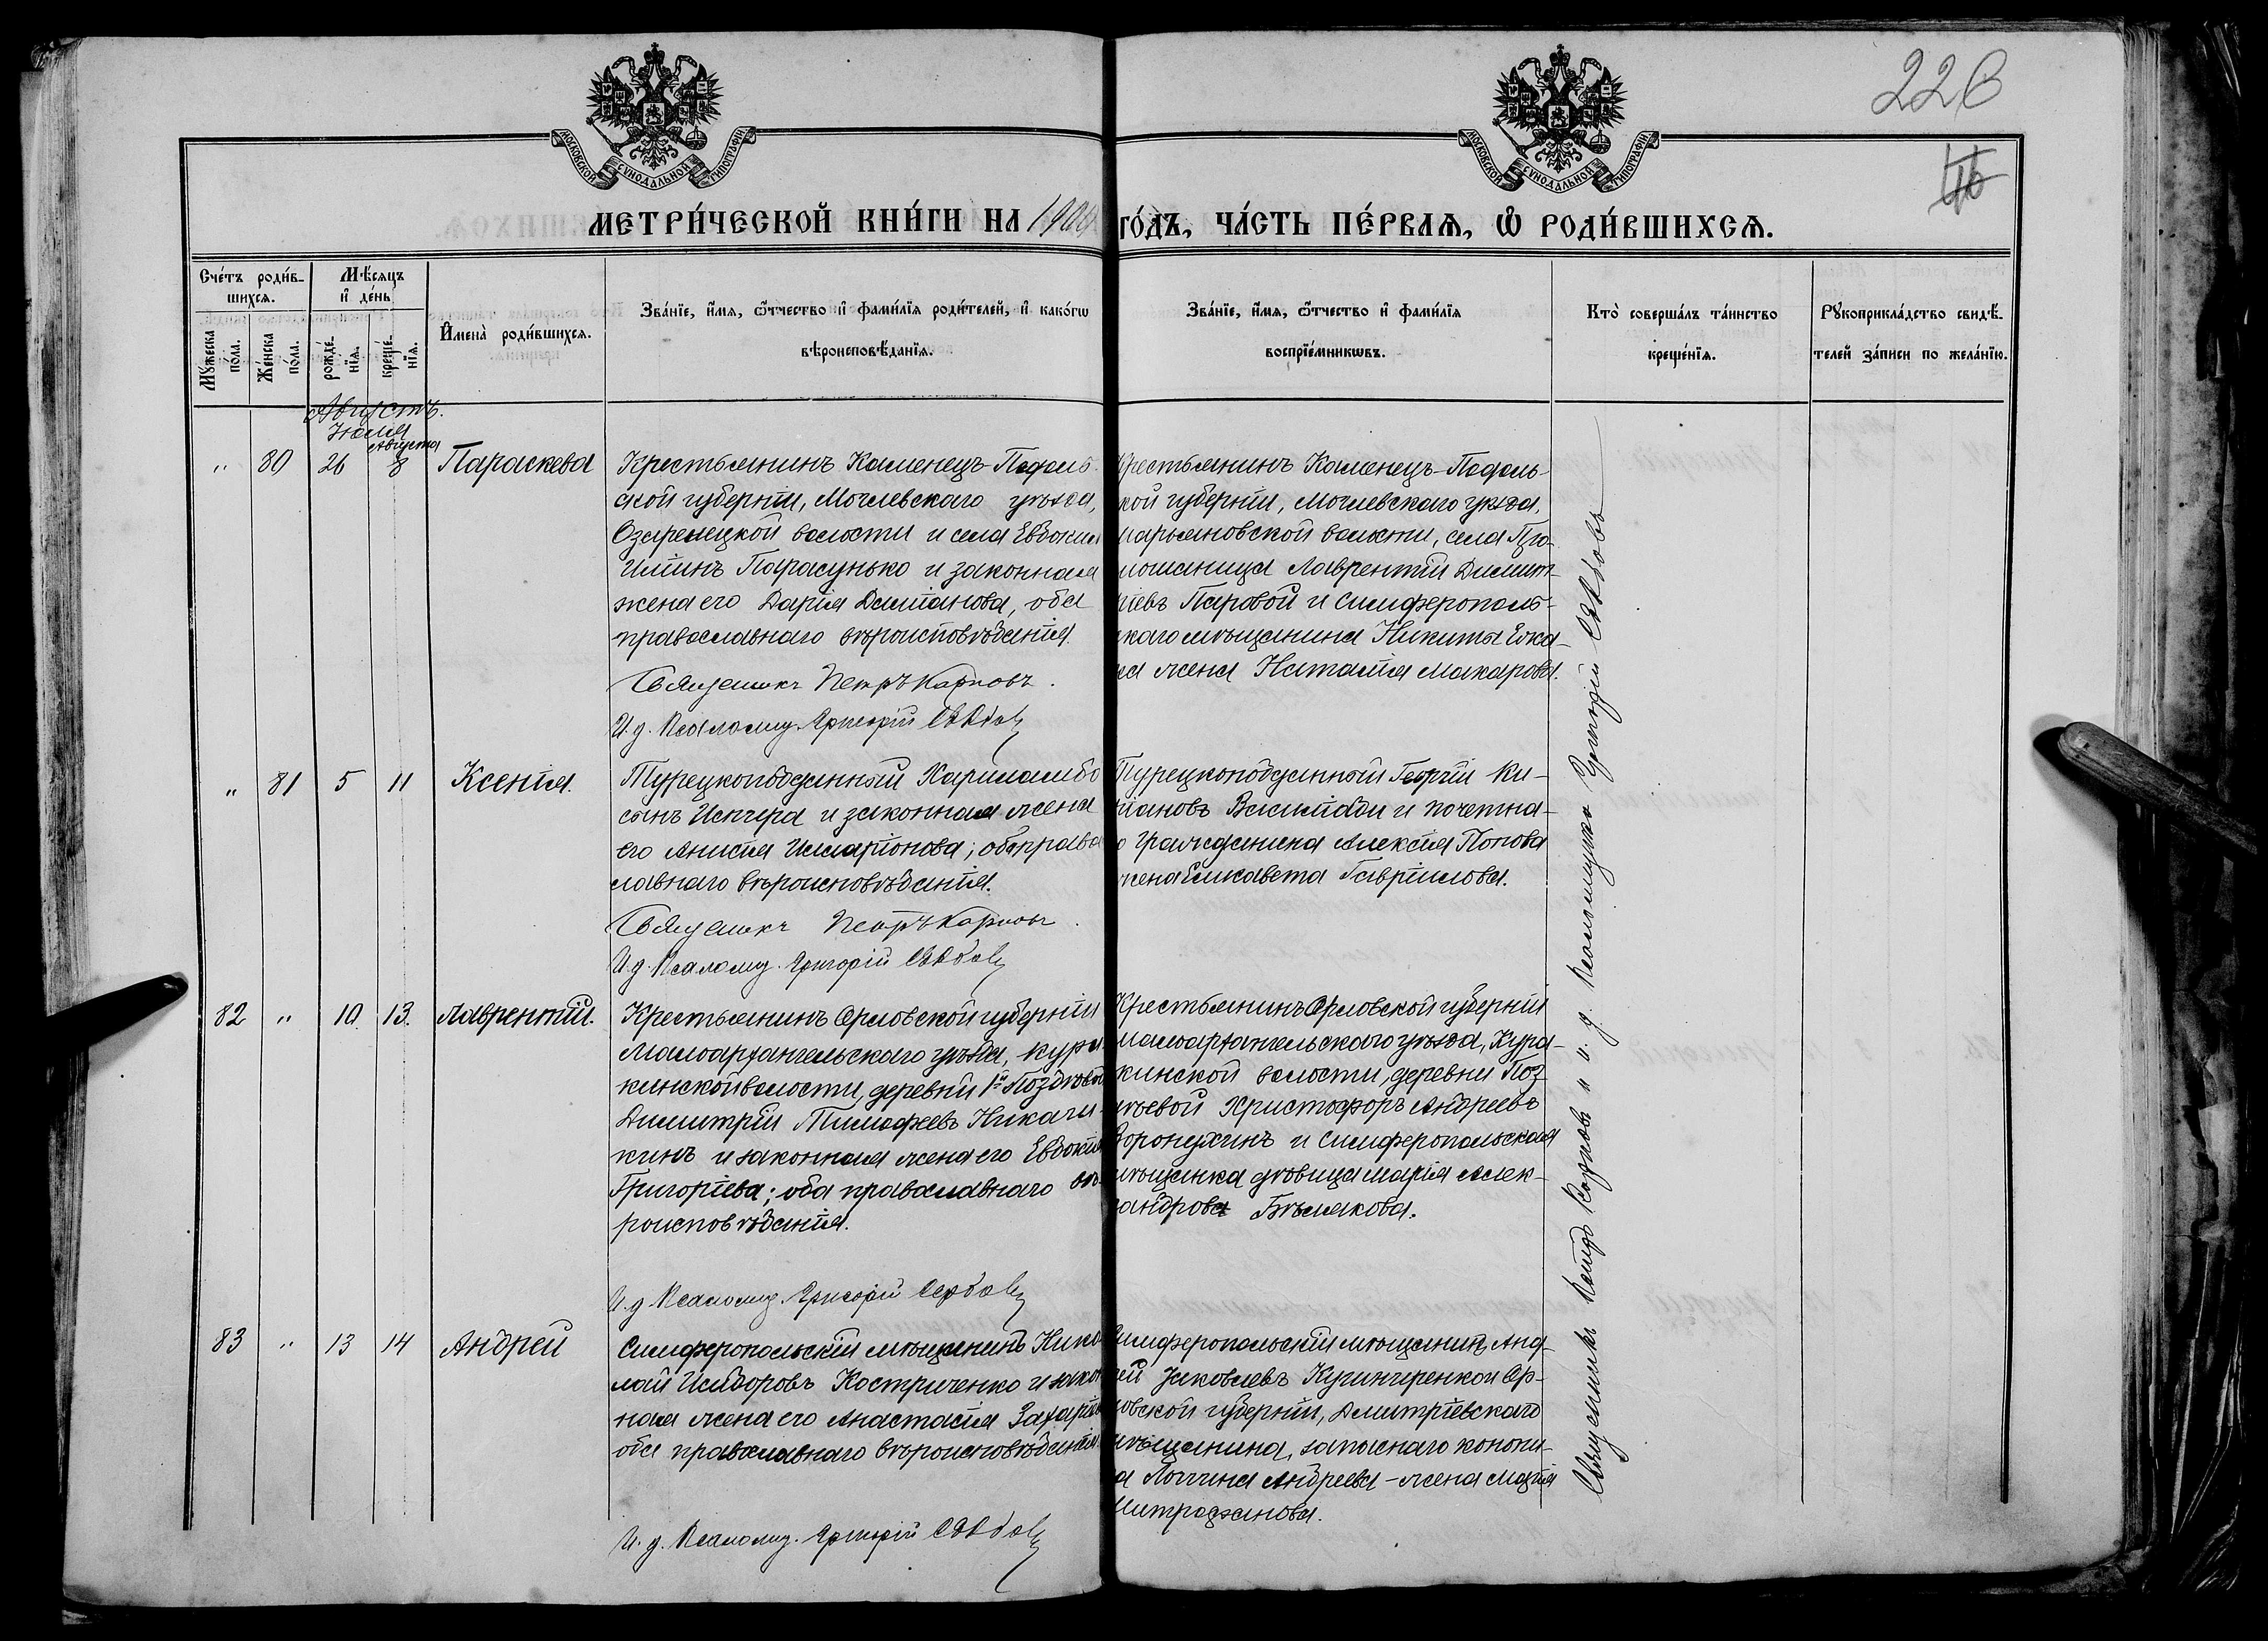 226
МОСКОВСКОЙ СѴНОДАЛЬНОЙ ТИПОГРАФІИ
МОСКОВСКОЙ СѴНОДАЛЬНОЙ ТИПОГРАФІИ
МЕТРИ́ЧЕСКОЙ КНИ́ГИ НА
ГО́ДЪ, ЧА́СТЬ ПЕ́РВАѦ, Ѽ РОДИ́ВШИХСѦ.
Сче́тъ роди́в-
шихсѧ.
Мѣ́сѧцъ
и҆ де́нь
Мꙋ́жеска
по́ла.
Же́нска
по́ла.
рожде́-
нїѧ.
креще́-
нїѧ.
И҆мена̀ роди́вшихсѧ.
Зва́нїе, и҆́мѧ, ѻ҆́тчество и҆ фами́лїѧ роди́телей, и҆ како́гѡ
вѣроисповѣ́данїѧ.
Зва́нїе, и҆́мѧ, ѻ҆́тчество и҆ фами́лїѧ
воспрїе́мникѡвъ.
Кто̀ соверша́лъ та́инство
креще́нїѧ.
Рꙋкоприкла́дство свидѣ́-
телей за́писи по жела́нїю.
Августъ.
Іюля
Августа
" 80 26 8 Параскева
Крестьянинъ Каменецъ-Подоль-
ской губерніи, Могилевскаго уѣзда,
Озаренецкой волости и села Евдоким
Ильинъ Парасунько и законная
жена его Дарія Даміанова, оба
православнаго вѣроисповѣданія.
Священникъ Петръ Карповъ.
И. д. Псаломщ. Григорій
Крестьянинъ Каменецъ-Подоль-
кой губерніи, Могилевскаго уѣзда,
марьяновской волости, села
Лаврентій Димит-
ріевъ Паровой и Симферополь-
скаго мѣщанина Никиты
жена Наталія Макарова.
" 81 5 11 Ксенія.
Турецкоподданный Харлампо
сынъ и законная жена
его Анисія Илларіонова; оба право
славнаго вѣроисповѣданія.
Священникъ Петръ Карповъ.
И. д. Псаломщ. Григорій
Турецкоподданный Георгій Ки-
ріановъ и почетна-
о гражданина Алексія Попова
жена Елисавета Гавріилова.
82 " 10 13. Лаврентій.
Крестьянинъ Орловской губерніи
Малоархангельскаго уѣзда, Кура
кинской волости, деревни 1-й
Димитрій Тимофеевъ Никачи-
кинъ и законная жена его Евдокія
Григоріева; оба православнаго вѣ-
роисповѣданія.
И. д. Псаломщ. Григорій
Крестьянинъ Орловской губерніи
малоархангельскаго уѣзда, Кура-
кинской волости, деревни Поз-
Христофоръ Андреевъ
Воронухинъ и Симферопольская
мѣщанка дѣвица Марія Алек-
сандрова Бѣлякова.
83 " 13 14 Андрей
Симферопольскій мѣщанинъ Нико
лай Исидоровъ Костриченко и закон
ная жена его Анастасія
оба православнаго вѣроисповѣданія.
И. д. Псаломщ. Григорій
Симферопольскій мѣщанинъ Анд-
рей Іаковлевъ и Ор-
ловской губерніи, Дмитріевскаго
мѣщанина, запаснаго
Андреева - жена Марія
Митрофанова.
Священникъ Петръ Карповъ и и. д. Псаломщика Григорій